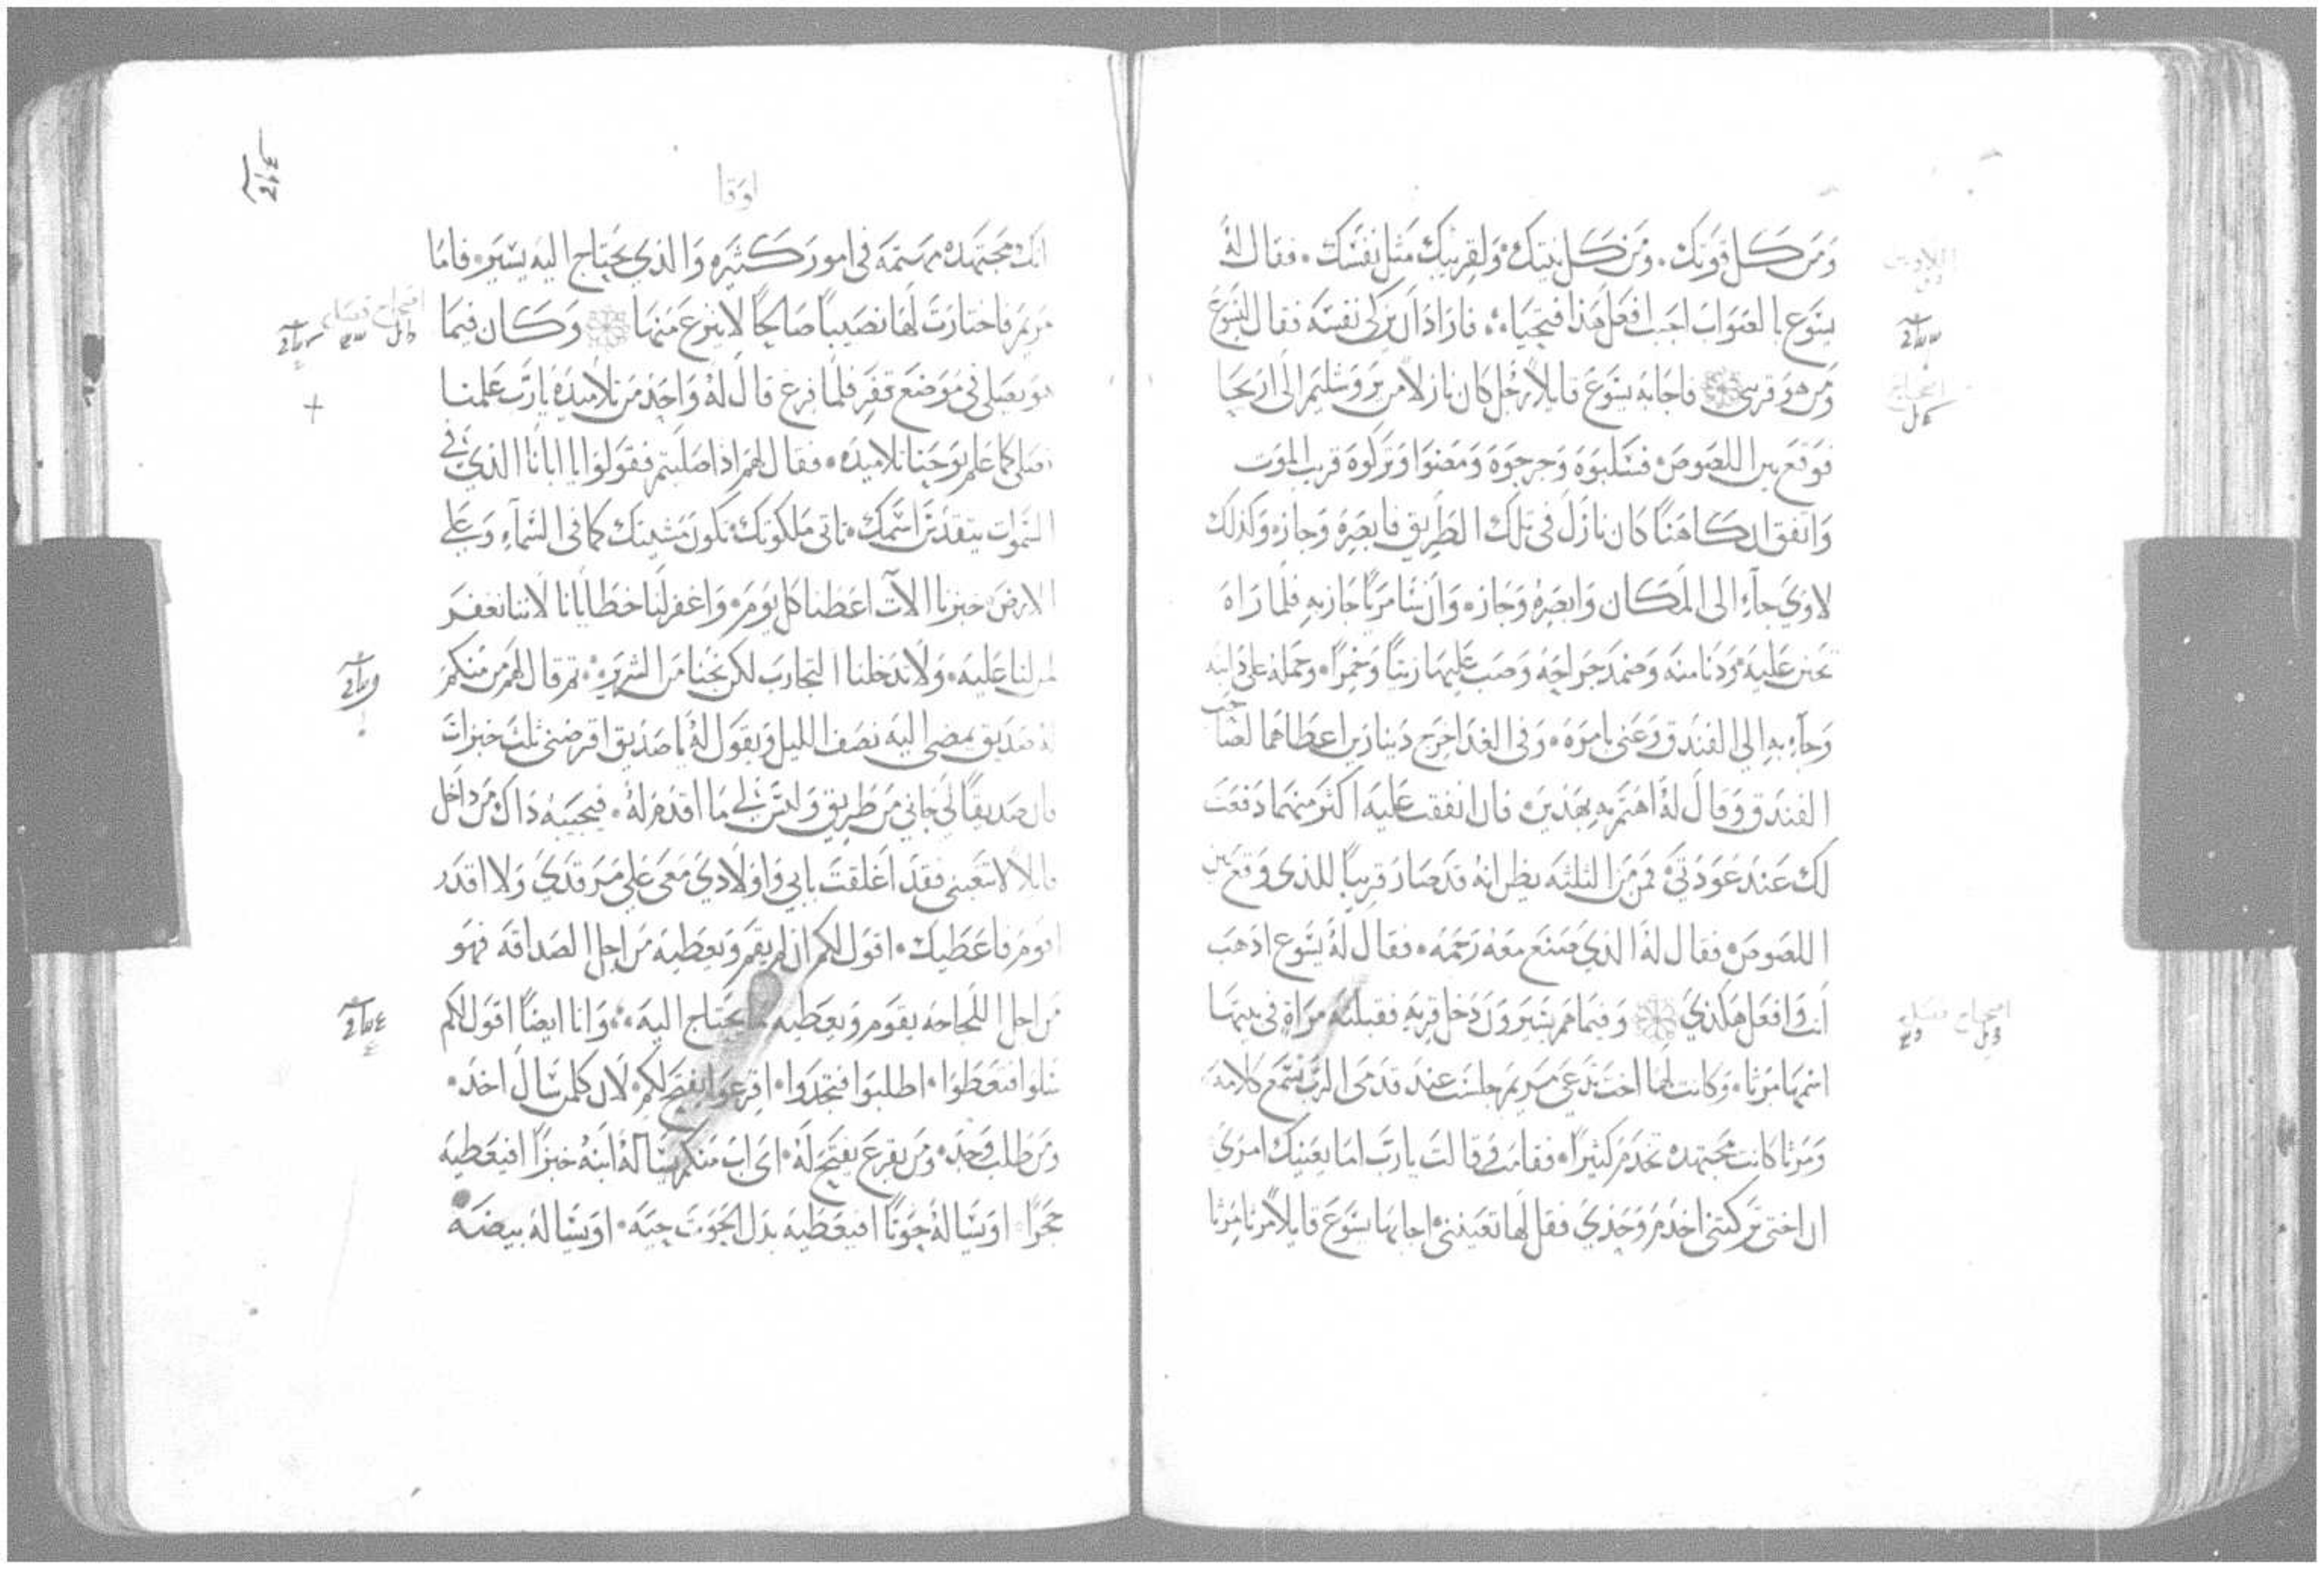 ومن كل قوتك. ومن كل نيتك. ولقريبك مثل نفسك. فقال له
يسوع بالصواب اجبت افعل هذا فتحيا. فاراد ان يزكى نفسه فقال ليسوع
ومن هو قريبى فاجابه يسوع قايلا رجل كان نازلا من يروشليم الى اريحا
فوقع بين اللصوص فشلبوه وجرحوه ومضوا وتركوه قريب الموت
واتفق ان كاهنا كان نازل في تلك الطريق فابصره وجازه وكذلك
لاوي جاء الى المكان وابصره وجازه وان سامريا جاز به فلما راه
تحنن عليه ودنا منه وضمد جراحه وصب عليها زيتا وخمرا. وحمله على دابته
وجاء به الي الفندق وعني بامره. وفي الغد اخرج دينارين اعطاهما لصاحب
الفندق وقال له اهتم به بهذين. فان انفقت عليه اكثر منهما دفعت
لك عند عودتي فمن من الثلثه يظن انه قد صار قريبا للذى وقع بين
اللصوص فقال له الذي صنع معه رحمه. فقال له يسوع اذهب
انت وافعل هكذي وفيما هم يسيرون دخل قريه فقبلته مراة في بيتها
اسمها مرثا. وكانت لها اخت تدعى مريم جلست عند قدمى الرب تسمع كلامه
ومرثا كانت مجتهده تخدم كثيرا. فقامت وقالت يا رب اما يعنيك امري
ان اختي تركتني اخدم وحدي فقل لها تعينني اجابها يسوع قايلا مرثا مرثا
لوقا
انك مجتهده مهتمه في امور كثيره والذي يحتاج اليه يسير. فاما
مريم فاختارت لها نصيبا صالحا لا ينزع منها وكان فيما
هو يصلي في موضع قفر فلما فرغ قال له واحد من تلاميذه يا رب علمنا
نصلي كما علم يوحنا تلاميذه. فقال لهم اذا صليتم فقولوا يا ابانا الذي في
السموات يتقدس اسمك. تاتي ملكوتك تكون مشيتك كما في السماء وعلي
الارض خبزنا الات اعطنا كل يوم. واغفر لنا خطايانا لاننا نغفر
لمن لنا عليه. ولا تدخلنا التجارب لكن نجنا من الشرير. ثم قال لهم من منكم
له صديق يمضى اليه نصف الليل ويقول له يا صديق اقرضنى ثلث خبزات
فان صديقا لي جاني من طريق وليس لي ما اقدم له. فيجيبه ذاك من داخل
قايلا لا تتعبنى فقد اغلقت بابي واولادي معى على مرقدي ولا اقدر
اقوم فاعطيك. اقول لكم ان لم يقم ويعطيه من اجل الصداقه فهو
من اجل اللجاجه يقوم ويعطيه ما يحتاج اليه. وانا ايضا اقول لكم
سلوا فتعطوا. اطلبوا فتجدوا. اقرعوا يفتح لكم. لان كلمن سال اخذ.
ومن طلب وجد. ومن يقرع يفتح له. اى اب منكم يساله ابنه خبزا افيعطيه
حجرا. او يساله حوتا افيعطيه بدل الحوت حيه. او يساله بيضه